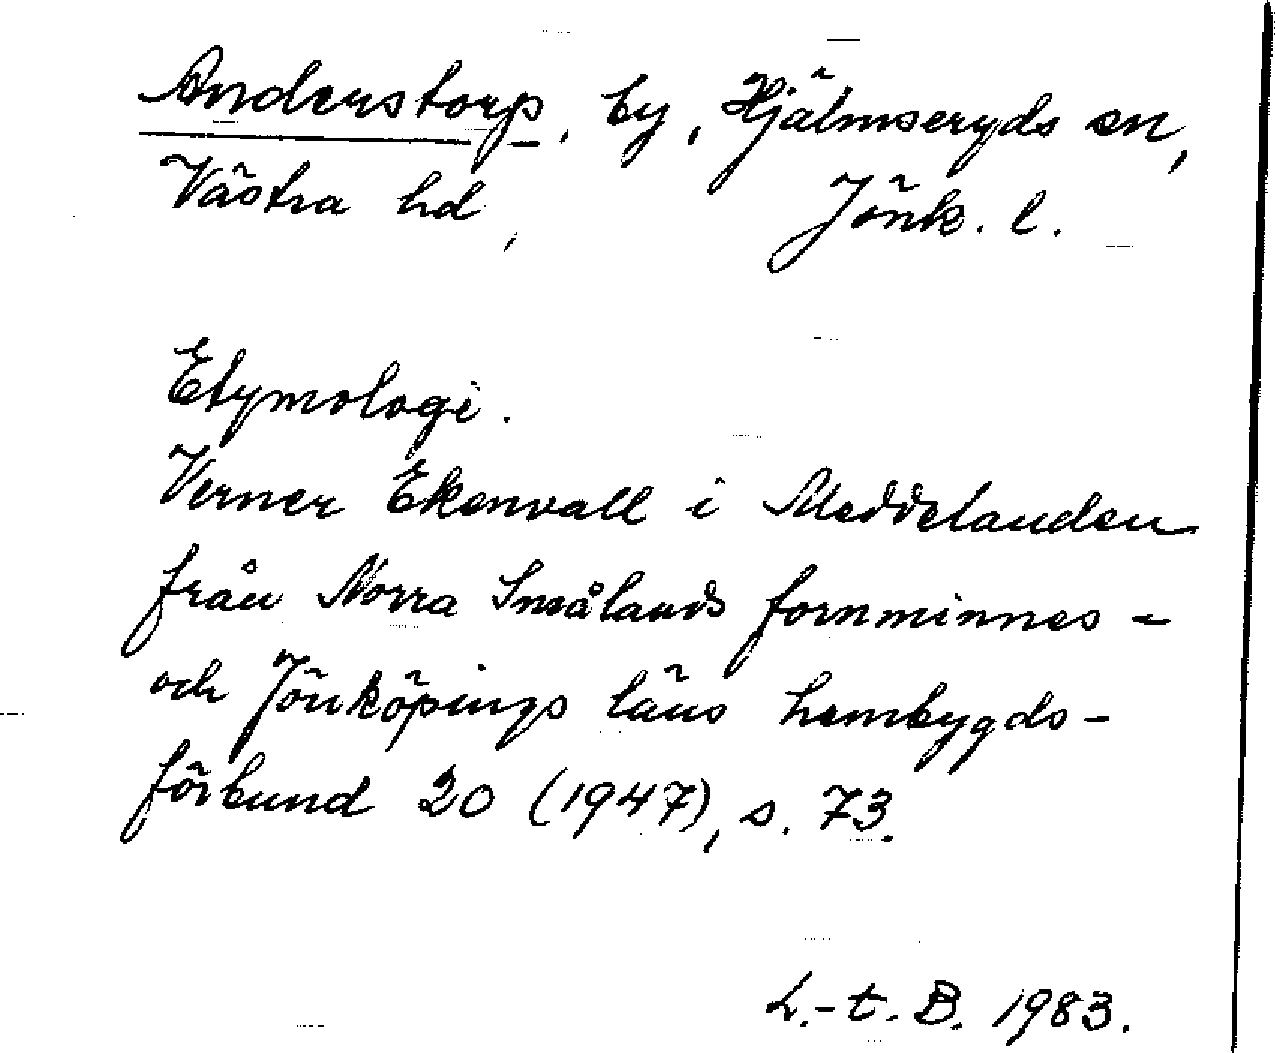 Anderstorp, by, Hjälmseryds sn,
Västra hd, Jönk. l.
Etymologi.
Verner Ekenvall i Meddelanden
från Norra Smålands fornminnes-
och Jönköpings läns hembygds-
förbund 20 (1947), s. 73.
L.-t. B. 1983.